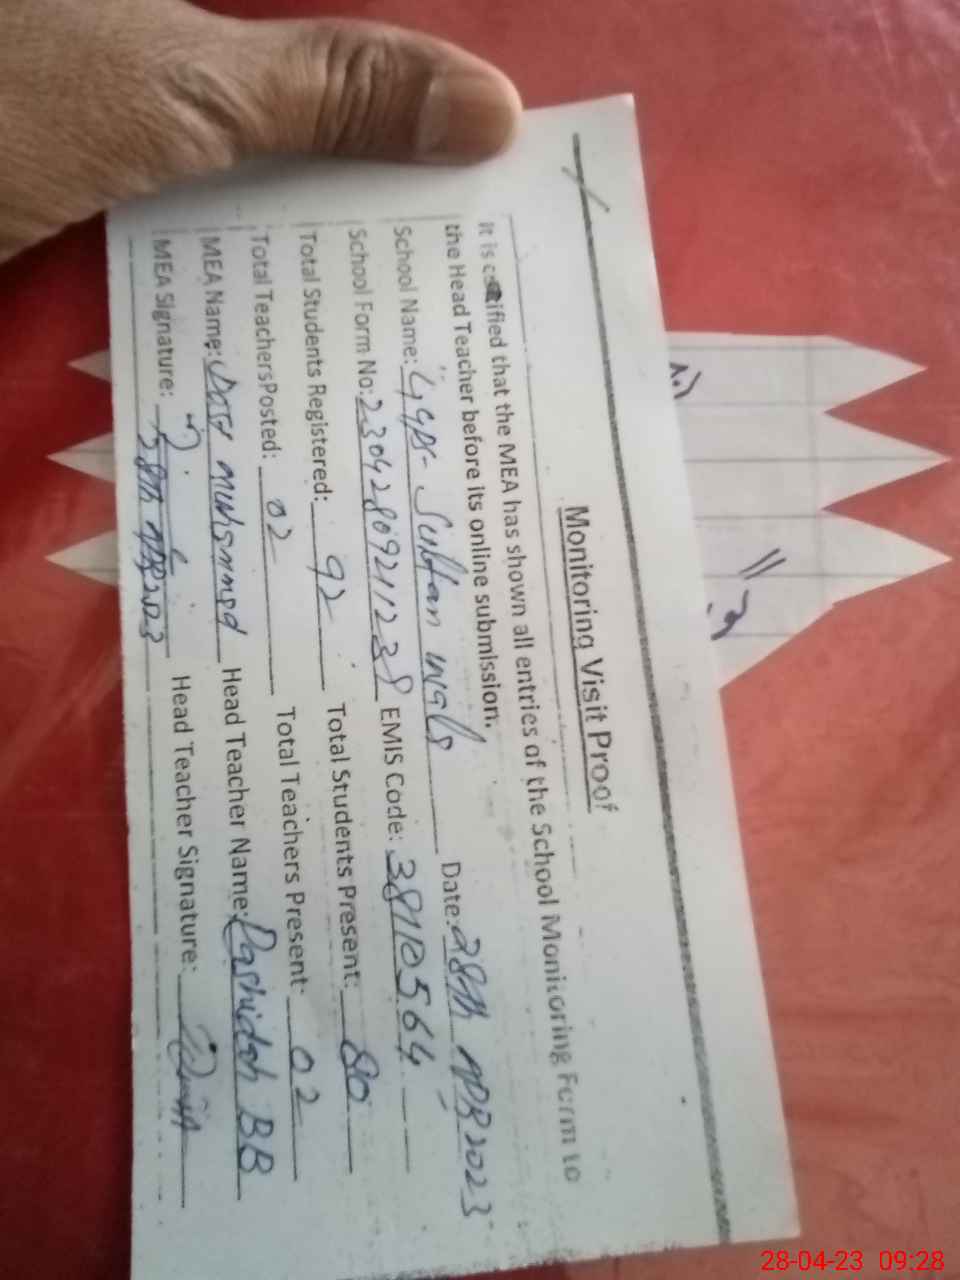 Monitoring Visit Proof
It is certified that the MEA has shown all entries of the School Monitoring Form to
the Head Teacher before its online submission.
School Name: GGPS- Sultan Wala Date: 28th APR 2023
School Form No: 2304280921238 EMIS Code: 38110564
Total Students Registered: 92 Total Students Present: 80
Total Teachers Posted: 02 Total Teachers Present: 02
MEA Name: Muhammad Head Teacher Name: Rashidah BB
MEA Signature: 28th APR 2023 Head Teacher Signature:
28-04-23 09:28